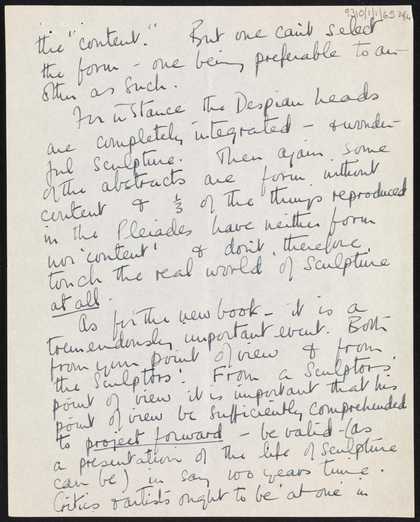 9310/1/1/65 2/4
the "content." But one can't select
the form – one being preferable to an-
other as such.
For instance the Despiau heads
are completely integrated – & wonder-
ful sculpture. Then again some
of the abstracts are form without
content & ⅓ of the things reproduced
in the Pleiades have neither form
nor 'content' & don't, therefore,
touch the real world of Sculpture
at all.
As for the new book – it is a
tremendously important event. Both
from your point of view & from
the Sculptors! From a Sculptors
point of view it is important that his
point of view be sufficiently comprehended
to project forward – be valid – (as
a presentation of the life of sculpture
can be) in say 100 years time.
Critics & artists ought to be 'at one' in